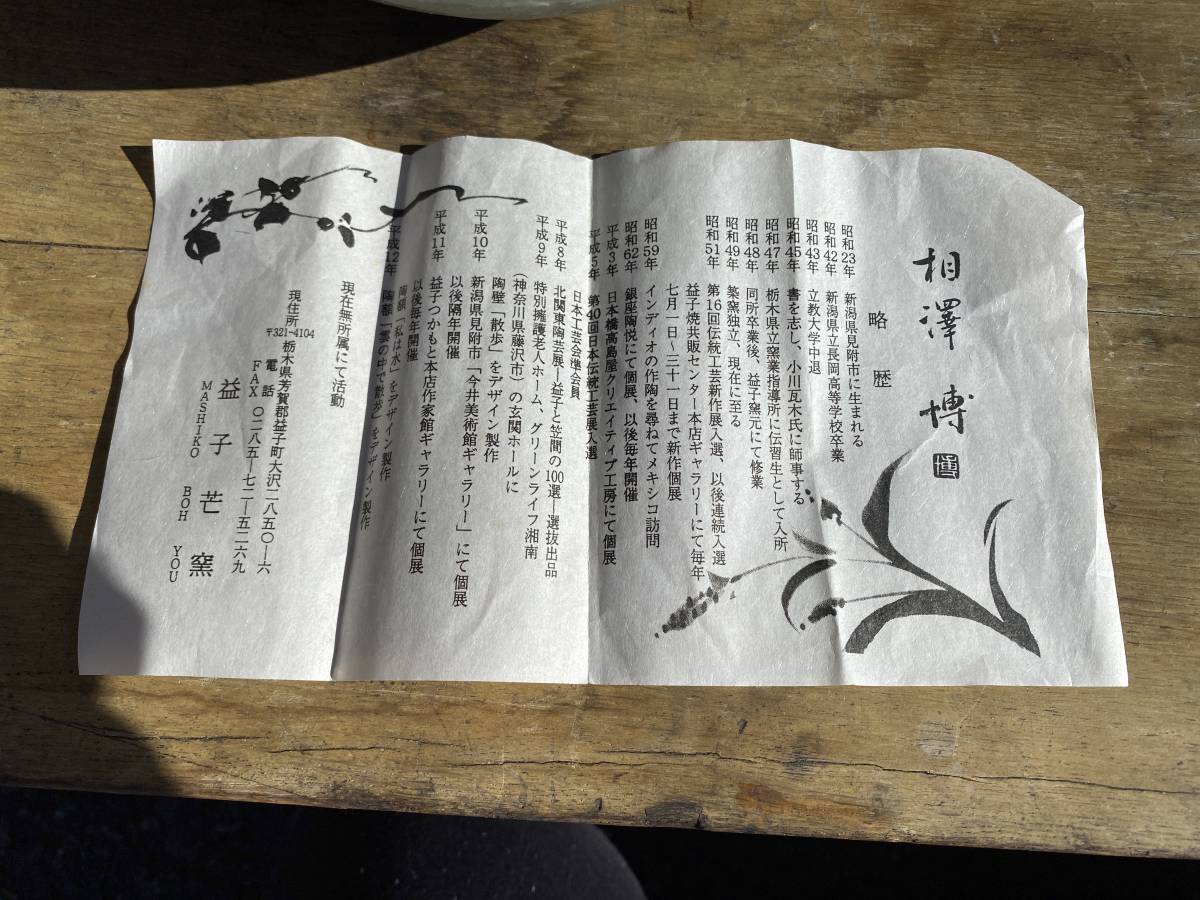 相澤 博
博
略歴
昭和23年 新潟県見附市に生まれる
昭和42年 新潟県立長岡高等学校卒業
昭和43年 立教大学中退
昭和45年 書を志し、小川瓦木氏に師事する
昭和47年 栃木県立窯業指導所に伝習生として入所
昭和48年 同所卒業後、益子窯元にて修業
昭和49年 築窯独立、現在に至る
昭和51年 第16回伝統工芸新作展入選、以後連続入選
益子焼共販センター本店ギャラリーにて毎年
七月一日〜三十一日まで新作個展
昭和59年 インディオの作陶を尋ねてメキシコ訪問
昭和62年 銀座陶悦にて個展、以後毎年開催
平成3年 日本橋高島屋クリエイティブ工房にて個展
平成5年 第40回日本伝統工芸展入選
日本工芸会準会員
平成8年 北関東陶芸展―益子と笠間の100選―選抜出品
平成9年 特別擁護老人ホーム、グリーンライフ湘南
(神奈川県藤沢市)の玄関ホールに
陶壁「散歩」をデザイン製作
平成10年 新潟県見附市「今井美術館ギャラリー」にて個展
以後隔年開催
平成11年 益子つかもと本店作家館ギャラリーにて個展
以後毎年開催
陶額「私は水」をデザイン製作
平成12年 陶額「雲の中で散歩」をデザイン製作
現在無所属にて活動
現住所 栃木県芳賀郡益子町大沢二八五〇―六
〒321-4104
電話
FAX 〇二八五―七二―五二六九
益子芒窯
MASHIKO BOH YOU